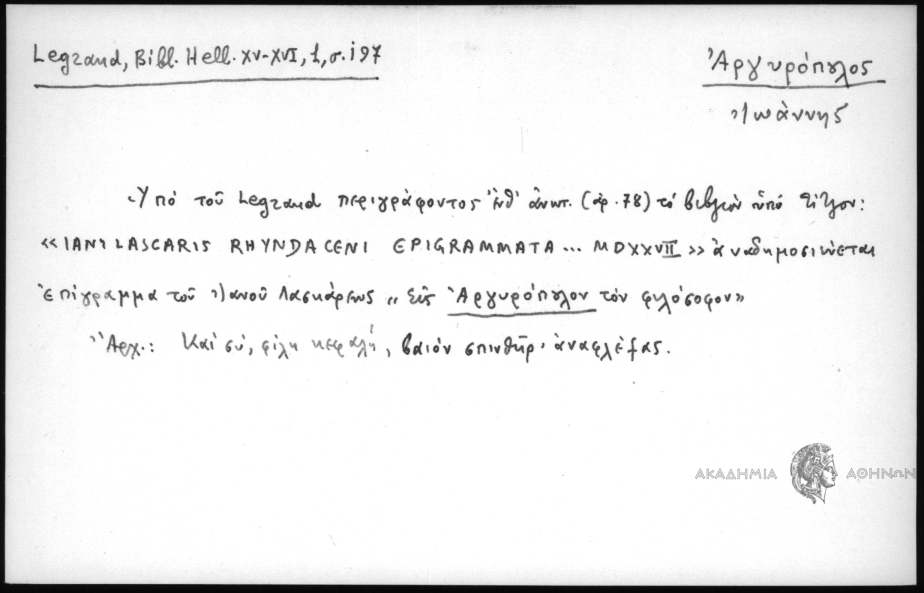 Legrand, Bibl. Hell. XV-XVI, 1, σ. 197
Ἀργυρόπυλος
Ἰωάννης
Ὑπό τοῦ Legrand περιγράφοντος (ἀρ. 78) τό βιβλίον ὑπό τίτλον:
«IANI LASCARIS RHYNDACENI EPIGRAMMATA ... MDXXVII» ἀναδημοσιεύεται
ἐπίγραμμα τοῦ Ἰανοῦ Λασκάρεως „Εἰς Ἀργυρόπυλον τόν φιλόσοφον»
Ἀρχ.: Καί σύ, φίλη κεφαλή, βαιόν σπινθῆρ' ἀναφλέξας.
ΑΚΑΔΗΜΙΑ ΑΘΗΝΩΝ